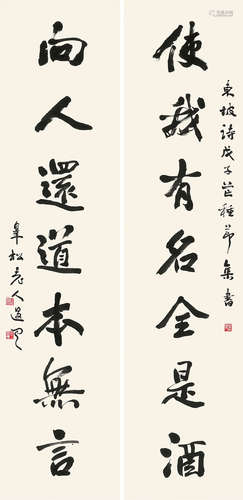 使我有名全是酒
東坡詩戊子芒種節集書
向人還道本無言
松老人